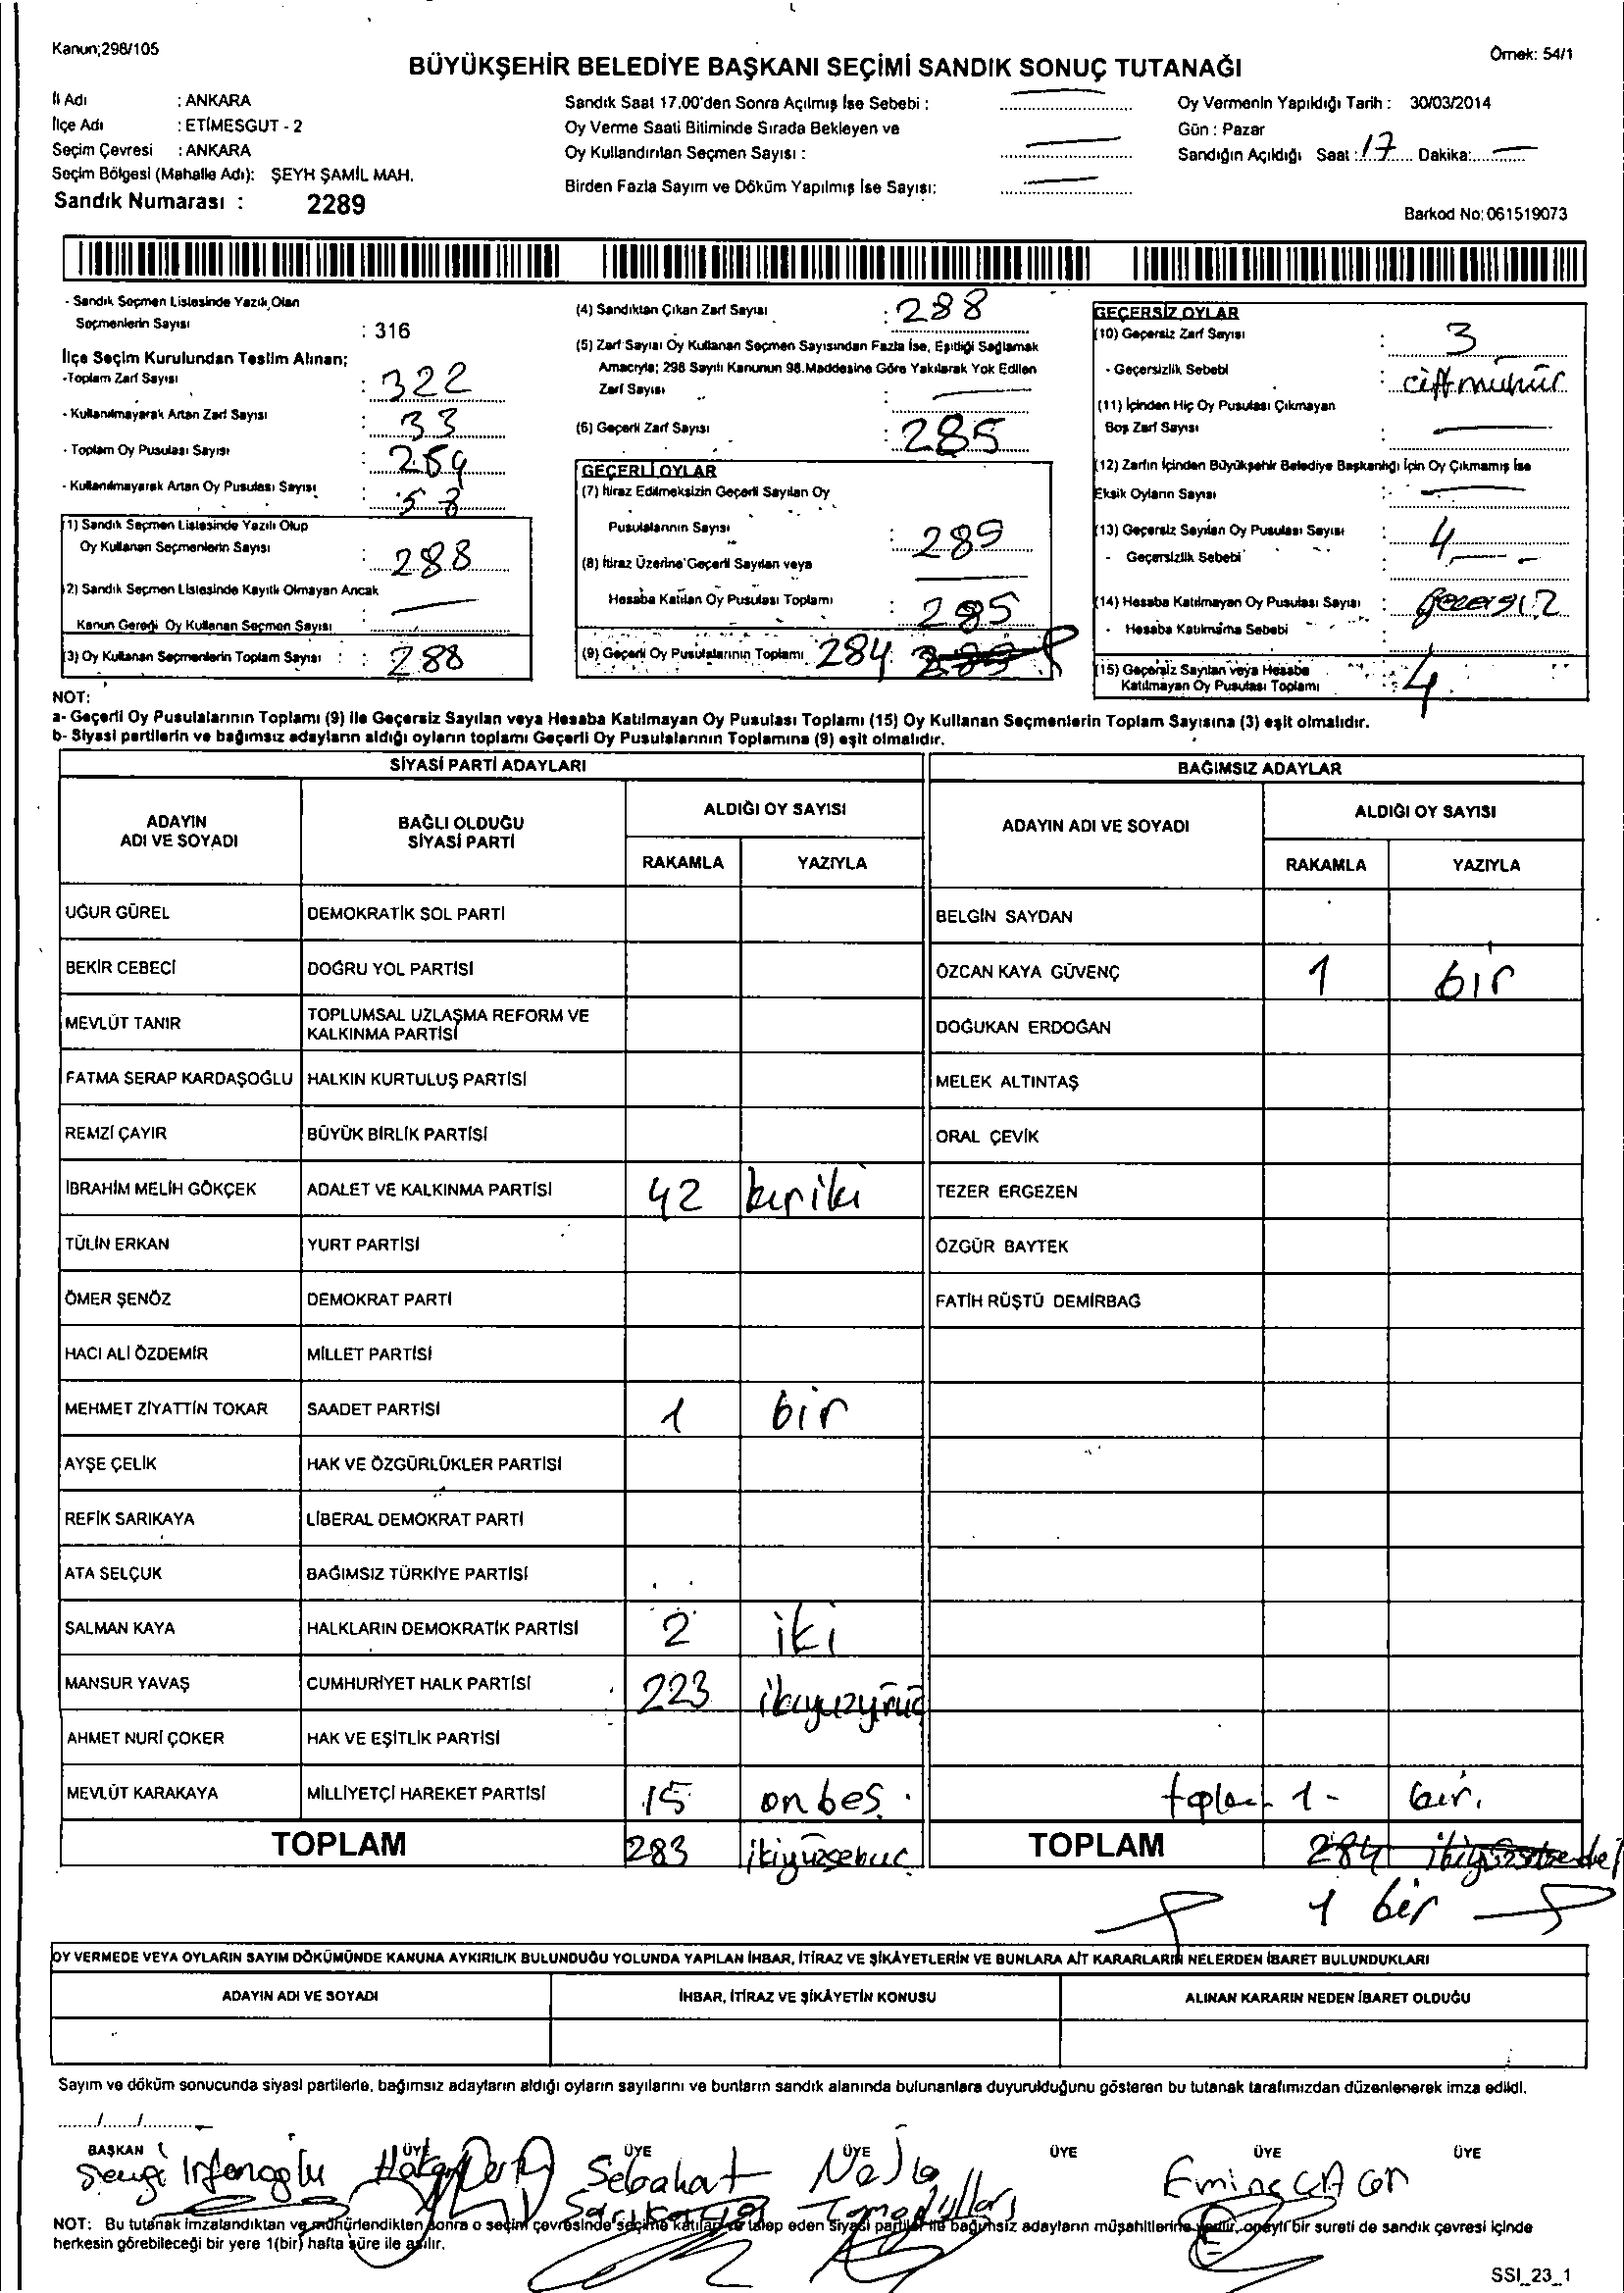 Kanun;298/105
Örnek: 54/1
BÜYÜKŞEHİR BELEDİYE BAŞKANI SEÇİMİ SANDIK SONUÇ TUTANAĞI
İl Adı : ANKARA
İlçe Adı : ETİMESGUT - 2
Seçim Çevresi : ANKARA
Seçim Bölgesi (Mahalle Adı): ŞEYH ŞAMİL MAH.
Sandık Numarası : 2289
Sandık Saat 17.00'den Sonra Açılmış İse Sebebi :
Oy Verme Saati Bitiminde Sırada Bekleyen ve
Oy Kullandırılan Seçmen Sayısı :
Birden Fazla Sayım ve Döküm Yapılmış İse Sayısı:
Oy Vermenin Yapıldığı Tarih : 30/03/2014
Gün : Pazar
Sandığın Açıldığı Saat : 17 Dakika:
Barkod No: 061519073
- Sandık Seçmen Listesinde Yazılı Olan
Seçmenlerin Sayısı : 316
İlçe Seçim Kurulundan Teslim Alınan;
-Toplam Zarf Sayısı : 322
- Kullanılmayarak Artan Zarf Sayısı : 33
- Toplam Oy Pusulası Sayısı :
- Kullanılmayarak Artan Oy Pusulası Sayısı :
(1) Sandık Seçmen Listesinde Yazılı Olup
Oy Kullanan Seçmenlerin Sayısı : 288
(2) Sandık Seçmen Listesinde Kayıtlı Olmayan Ancak
Kanun Gereği Oy Kullanan Seçmen Sayısı :
(3) Oy Kullanan Seçmenlerin Toplam Sayısı : 288
(4) Sandıktan Çıkan Zarf Sayısı : 288
(5) Zarf Sayısı Oy Kullanan Seçmen Sayısından Fazla İse, Eşitliği Sağlamak
Amacıyla; 298 Sayılı Kanunun 98.Maddesine Göre Yakılarak Yok Edilen
Zarf Sayısı :
(6) Geçerli Zarf Sayısı : 285
GEÇERLİ OYLAR
(7) İtiraz Edilmeksizin Geçerli Sayılan Oy
Pusulalarının Sayısı : 285
(8) İtiraz Üzerine Geçerli Sayılan veya
Hesaba Katılan Oy Pusulası Toplamı : 285
(9) Geçerli Oy Pusulalarının Toplamı 284
GEÇERSİZ OYLAR
(10) Geçersiz Zarf Sayısı : 3
- Geçersizlik Sebebi : çift mühür
(11) İçinden Hiç Oy Pusulası Çıkmayan
Boş Zarf Sayısı :
(12) Zarfın İçinden Büyükşehir Belediye Başkanlığı İçin Oy Çıkmamış İse
Eksik Oyların Sayısı :
(13) Geçersiz Sayılan Oy Pusulası Sayısı : 4
- Geçersizlik Sebebi :
(14) Hesaba Katılmayan Oy Pusulası Sayısı : geçersiz
- Hesaba Katılmama Sebebi :
(15) Geçersiz Sayılan veya Hesaba
Katılmayan Oy Pusulası Toplamı : 4
NOT:
a- Geçerli Oy Pusulalarının Toplamı (9) ile Geçersiz Sayılan veya Hesaba Katılmayan Oy Pusulası Toplamı (15) Oy Kullanan Seçmenlerin Toplam Sayısına (3) eşit olmalıdır.
b- Siyasi partilerin ve bağımsız adayların aldığı oyların toplamı Geçerli Oy Pusulalarının Toplamına (9) eşit olmalıdır.
SİYASİ PARTİ ADAYLARI
BAĞIMSIZ ADAYLAR
ADAYIN ADI VE SOYADI
BAĞLI OLDUĞU SİYASİ PARTİ
ALDIĞI OY SAYISI
RAKAMLA YAZIYLA
ADAYIN ADI VE SOYADI
ALDIĞI OY SAYISI
RAKAMLA YAZIYLA
UĞUR GÜREL DEMOKRATİK SOL PARTİ BELGİN SAYDAN
BEKİR CEBECİ DOĞRU YOL PARTİSİ ÖZCAN KAYA GÜVENÇ 1 bir
MEVLÜT TANIR TOPLUMSAL UZLAŞMA REFORM VE KALKINMA PARTİSİ DOĞUKAN ERDOĞAN
FATMA SERAP KARDAŞOĞLU HALKIN KURTULUŞ PARTİSİ MELEK ALTINTAŞ
REMZİ ÇAYIR BÜYÜK BİRLİK PARTİSİ ORAL ÇEVİK
İBRAHİM MELİH GÖKÇEK ADALET VE KALKINMA PARTİSİ 42 kırkiki TEZER ERGEZEN
TÜLİN ERKAN YURT PARTİSİ ÖZGÜR BAYTEK
ÖMER ŞENÖZ DEMOKRAT PARTİ FATİH RÜŞTÜ DEMİRBAĞ
HACI ALİ ÖZDEMİR MİLLET PARTİSİ
MEHMET ZİYATTİN TOKAR SAADET PARTİSİ 1 bir
AYŞE ÇELİK HAK VE ÖZGÜRLÜKLER PARTİSİ
REFİK SARIKAYA LİBERAL DEMOKRAT PARTİ
ATA SELÇUK BAĞIMSIZ TÜRKİYE PARTİSİ
SALMAN KAYA HALKLARIN DEMOKRATİK PARTİSİ 2 iki
MANSUR YAVAŞ CUMHURİYET HALK PARTİSİ 223
AHMET NURİ ÇOKER HAK VE EŞİTLİK PARTİSİ
MEVLÜT KARAKAYA MİLLİYETÇİ HAREKET PARTİSİ 15 onbeş toplam 1 - bir.
TOPLAM 283 TOPLAM 284
1 bir
OY VERMEDE VEYA OYLARIN SAYIM DÖKÜMÜNDE KANUNA AYKIRILIK BULUNDUĞU YOLUNDA YAPILAN İHBAR, İTİRAZ VE ŞİKÂYETLERİN VE BUNLARA AİT KARARLARIN NELERDEN İBARET BULUNDUKLARI
ADAYIN ADI VE SOYADI İHBAR, İTİRAZ VE ŞİKÂYETİN KONUSU ALINAN KARARIN NEDEN İBARET OLDUĞU
Sayım ve döküm sonucunda siyasi partilerle, bağımsız adayların aldığı oyların sayılarını ve bunların sandık alanında bulunanlara duyurulduğunu gösteren bu tutanak tarafımızdan düzenlenerek imza edildi.
....../....../............
BAŞKAN ÜYE ÜYE ÜYE ÜYE ÜYE ÜYE
Sebahat Emine
NOT: Bu tutanak imzalandıktan ve mühürlendikten sonra o seçim çevresinde seçime katılan ve talep eden siyasi partiler ile bağımsız adayların müşahitlerine verilir, onaylı bir sureti de sandık çevresi içinde
herkesin görebileceği bir yere 1(bir) hafta süre ile asılır.
SSI_23_1